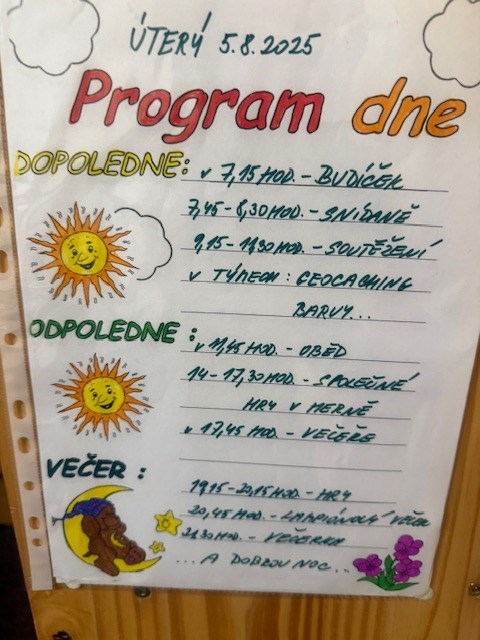 ÚTERÝ 5.8.2025
Program dne
DOPOLEDNE:
v 7,15 HOD. - BUDÍČEK
7,45 - 8,30 HOD. - SNÍDANĚ
9,15 - 11,30 HOD. - SOUTĚŽENÍ
v TÝMECH : GEOCACHING
BARVY...
ODPOLEDNE :
v 11,45 HOD. - OBĚD
14 - 17,30 HOD. - SPOLEČNÉ
HRY V HERNĚ
v 17,45 HOD. - VEČEŘE
VEČER :
19,15 - 20,15 HOD. - HRY
20,45 HOD. - LAMPIÓNOVÝ VEČER
21,30 HOD. - VEČERKA
...A DOBROU NOC...